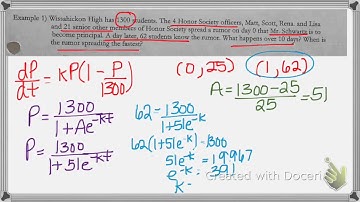 Example 1) Wissahickon High has 1300 students. The 4 Honor Society officers, Matt, Scott, Rena and Lisa
and 21 senior other members of Honor Society spread a rumor on day 0 that Mr. Schwartz is to
become principal. A day later, 62 students know the rumor. What happens over 10 days? When is
the rumor spreading the fastest?
dP/dt = kP(1 - P/1300)
(0, 25) (1, 62)
A = (1300-25)/25 = 51
P = 1300/(1+Ae^-kt)
62 = 1300/(1+51e^-k)
62(1+51e^-k)=1300
P = 1300/(1+51e^-kt)
51e^-k = 19.967
e^-k = .391
k =
Created with Doceri